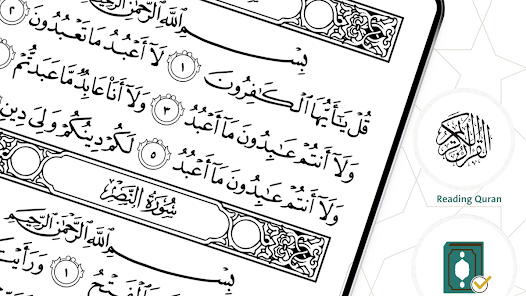 بِسْمِ ٱللَّهِ ٱلرَّحْمَٰنِ ٱلرَّحِيمِ
قُلْ يَٰٓأَيُّهَا ٱلْكَٰفِرُونَ ١ لَآ أَعْبُدُ مَا تَعْبُدُونَ ٢
وَلَآ أَنتُمْ عَٰبِدُونَ مَآ أَعْبُدُ ٣ وَلَآ أَنَا۠ عَابِدٌ مَّا عَبَدتُّمْ
وَلَآ أَنتُمْ عَٰبِدُونَ مَآ أَعْبُدُ ٥ لَكُمْ دِينُكُمْ وَلِىَ دِينِ
سُورَةُ النَّصْرِ
بِسْمِ ٱللَّهِ ٱلرَّحْمَٰنِ ٱلرَّحِيمِ
وَٱلْفَتْحُ ١ وَرَأَيْتَ
القرآن الكريم
Reading Quran